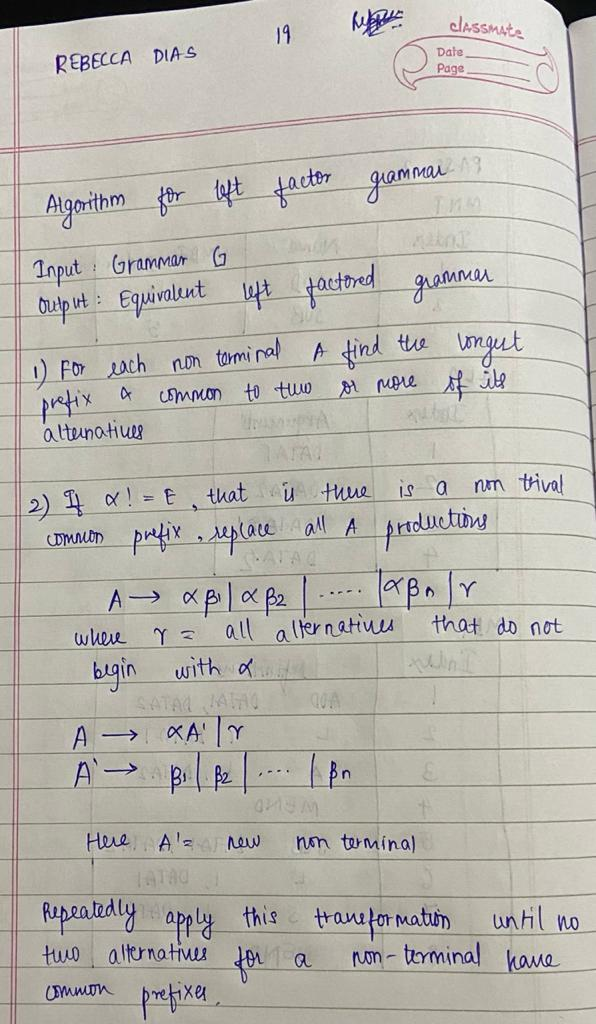 REBECCA DIAS
19
classmate
Date
Page
Algorithm for left factor grammar
Input : Grammar G
Output : Equivalent left factored grammar
1) For each non terminal A find the longest
prefix α common to two or more of its
alternatives
2) If α != ε, that is there is a non trival
common prefix, replace all A productions
A → αβ1 | αβ2 | ..... | αβn | γ
where γ = all alternatives that do not
begin with α
A → αA' | γ
A' → β1 | β2 | .... | βn
Here A' = new non terminal
Repeatedly apply this transformation until no
two alternatives for a non-terminal have
common prefixes.